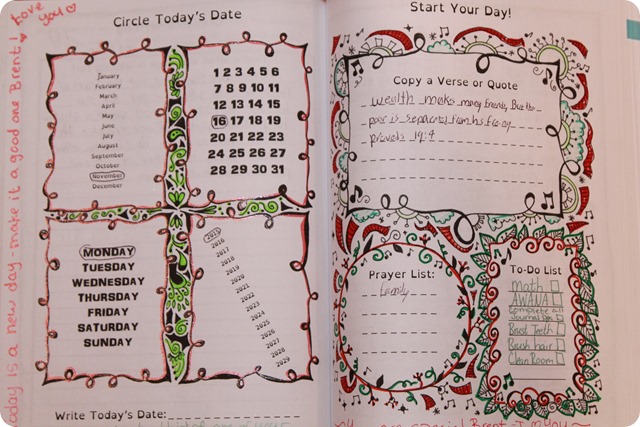 Circle Today's Date
January
February
March
April
May
June
July
August
September
October
November
December
1 2 3 4 5 6
7 8 9 10 11
12 13 14 15
16 17 18 19
20 21 22 23
24 25 26 27
28 29 30 31
MONDAY
TUESDAY
WEDNESDAY
THURSDAY
FRIDAY
SATURDAY
SUNDAY
2015
2016
2017
2018
2019
2020
2021
2022
2023
2024
2025
2026
2027
2028
2029
Write Today's Date:
today is a new day - make it a good one Brent! I Love
you ♡
Start Your Day!
Copy a Verse or Quote
wealth makes many friends, But the
poor is separated from his
proverbs 19:4
Prayer List:
Family
To-Do List
Math
AWANA
Complete all
Journal
Brush Teeth
Brush hair
Clean Room
special Brent - I